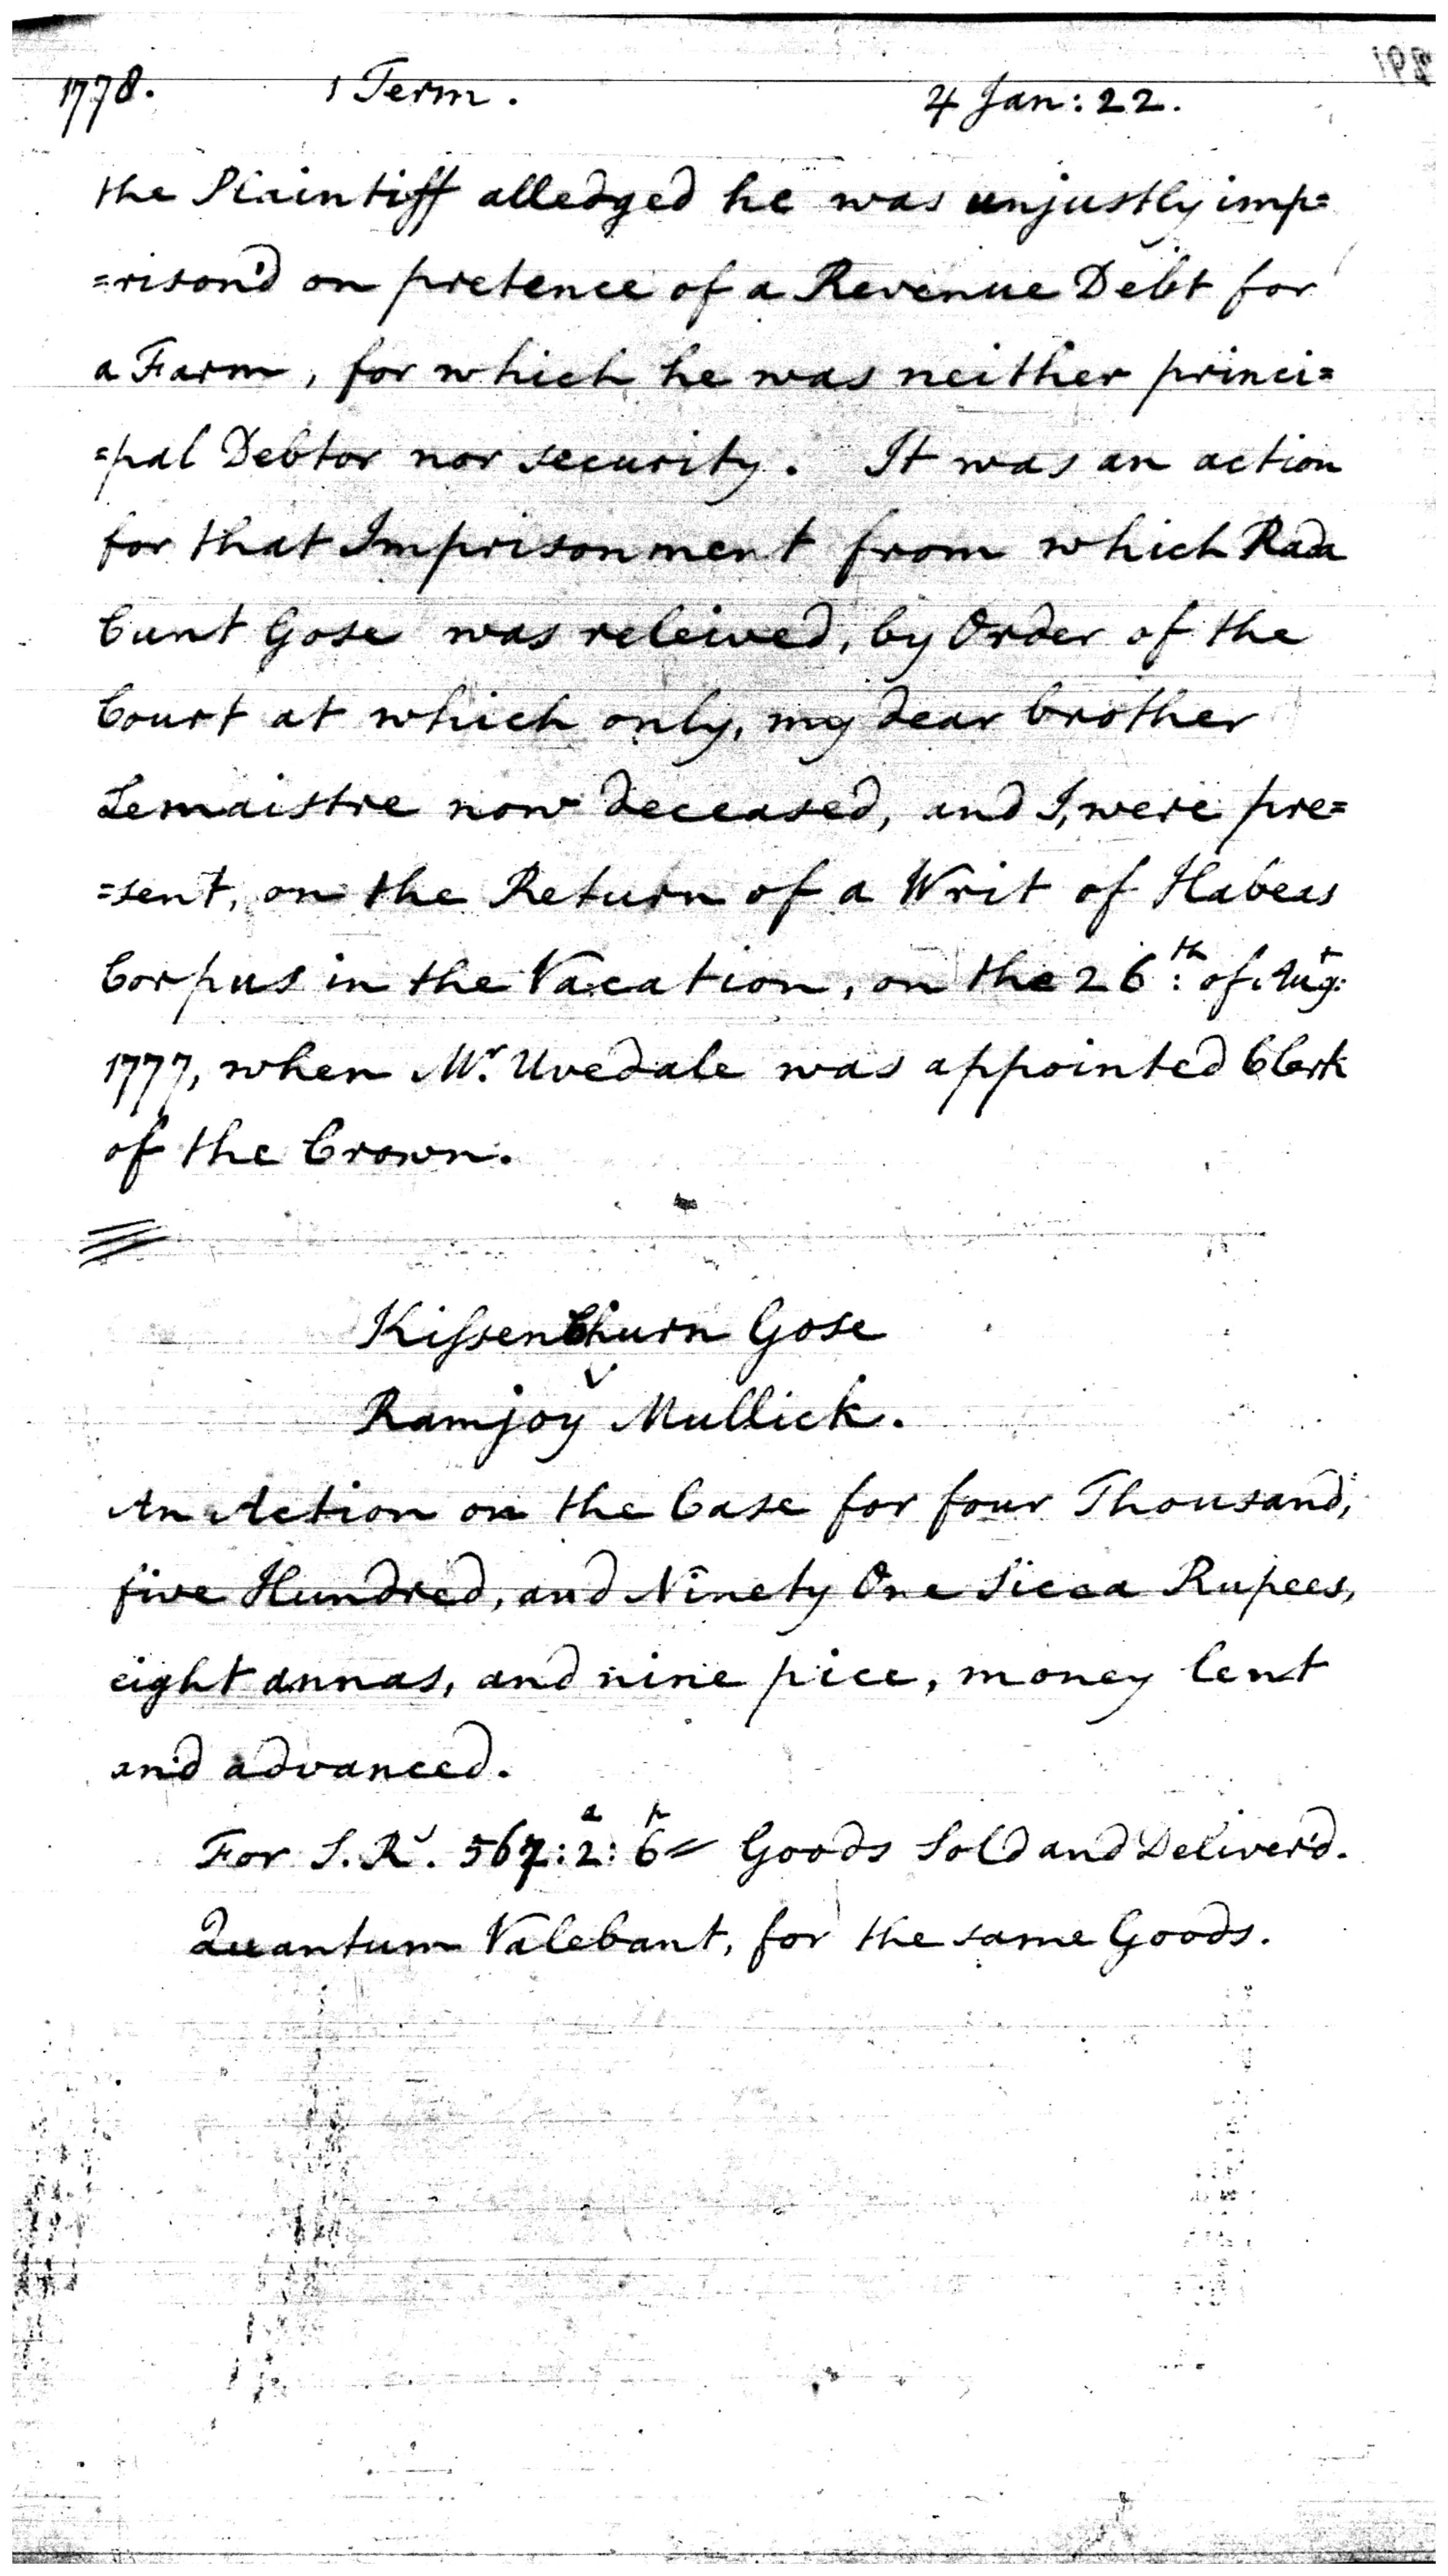 1778. 1 Term. 4 Jan: 22.
the Plaintiff alledged he was unjustly imp=
=rison'd on pretence of a Revenue Debt for
a Farm, for which he was neither princi=
=pal Debtor nor security. It was an action
for that Imprisonment from which Rada
Cunt Gose was releived, by Order of the
Court at which only, my dear brother
Lemaistre now deceased, and I, were pre=
=sent, on the Return of a Writ of Habeas
Corpus in the Vacation, on the 26th: of Augt:
1777, when Mr. Uvedale was appointed Clerk
of the Crown.
Kissenchurn Gose
v
Ramjoy Mullick.
An Action on the Case for four Thousand,
five Hundred, and Ninety One Sicca Rupees,
eight annas, and nine pice, money lent
and advanced.
For S. Rs. 567: 2a: 6p= Goods Sold and Deliver'd.
Quantum Valebant, for the same Goods.